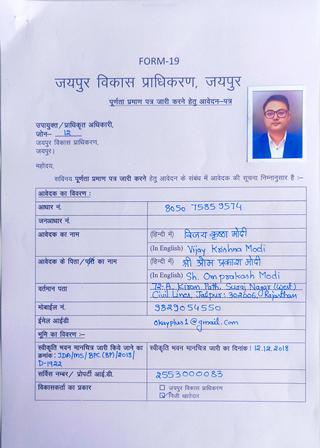 FORM-19
जयपुर विकास प्राधिकरण, जयपुर
पूर्णता प्रमाण पत्र जारी करने हेतु आवेदन-पत्र
उपायुक्त/प्राधिकृत अधिकारी,
जोन- 12
जयपुर विकास प्राधिकरण,
जयपुर।
महोदय,
सविनय पूर्णता प्रमाण पत्र जारी करने हेतु आवेदन के संबंध में आवेदक की सूचना निम्नानुसार है :-
आवेदक का विवरण :
आधार नं. 8050 7585 9574
जनआधार नं.
आवेदक का नाम (हिन्दी में) विजय कृष्णा मोदी
(In English) Vijay Krishna Modi
आवेदक के पिता/पति का नाम (हिन्दी में) श्री ओम प्रकाश मोदी
(In English) Sh. Omprakash Modi
वर्तमान पता 72-A, Kiran Path, Suraj Nagar (West)
Civil Lines, Jaipur: 302006, Rajasthan
मोबाईल नं. 9829054550
ईमेल आईडी okayplus1@gmail.com
भूमि का विवरण :-
स्वीकृति भवन मानचित्र जारी किये जाने का स्वीकृति भवन मानचित्र जारी का दिनांक : 12.12.2018
क्रमांक : JDA/MS/BPC (BP)/2018/
D-1922
सर्विस नम्बर/ प्रोपर्टी आई.डी. 2553000083
विकासकर्ता का प्रकार जयपुर विकास प्राधिकरण
निजी खातेदार